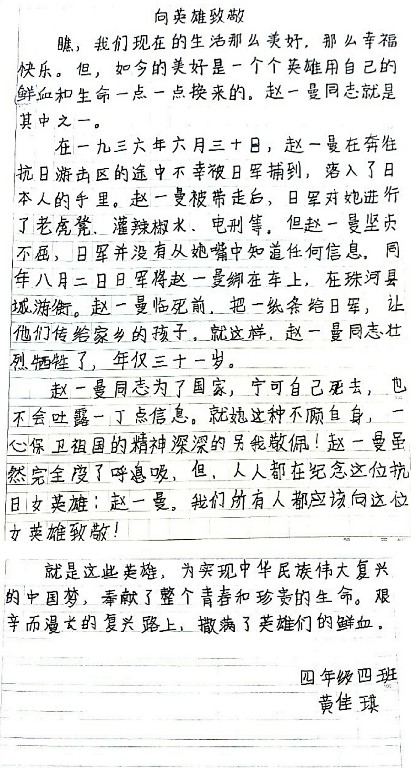 向英雄致敬
瞧，我们现在的生活那么美好，那么幸福
快乐。但，如今的美好是一个个英雄用自己的
鲜血和生命一点一点换来的。赵一曼同志就是
其中之一。
在一九三六年六月三十日，赵一曼在奔往
抗日游击区的途中不幸被日军捕到，落入了日
本人的手里。赵一曼被带走后，日军对她进行
了老虎凳、灌辣椒水、电刑等。但赵一曼坚贞
不屈，日军并没有从她嘴中知道任何信息。同
年八月二日日军将赵一曼绑在车上，在珠河县
城游街。赵一曼临死前，把一纸条给日军，让
他们传给家乡的孩子。就这样，赵一曼同志壮
烈牺牲了，年仅三十一岁。
赵一曼同志为了国家，宁可自己死去，也
不会吐露一丁点信息。就她这种不顾自身，一
心保卫祖国的精神深深的另我敬佩！赵一曼虽
然完全度了呼息吸，但，人人都在纪念这位抗
日女英雄：赵一曼。我们所有人都应该向这位
女英雄致敬！
就是这些英雄，为实现中华民族伟大复兴
的中国梦，奉献了整个青春和珍贵的生命。艰
辛而漫长的复兴路上，撒满了英雄们的鲜血。
四年级四班
黄佳琪